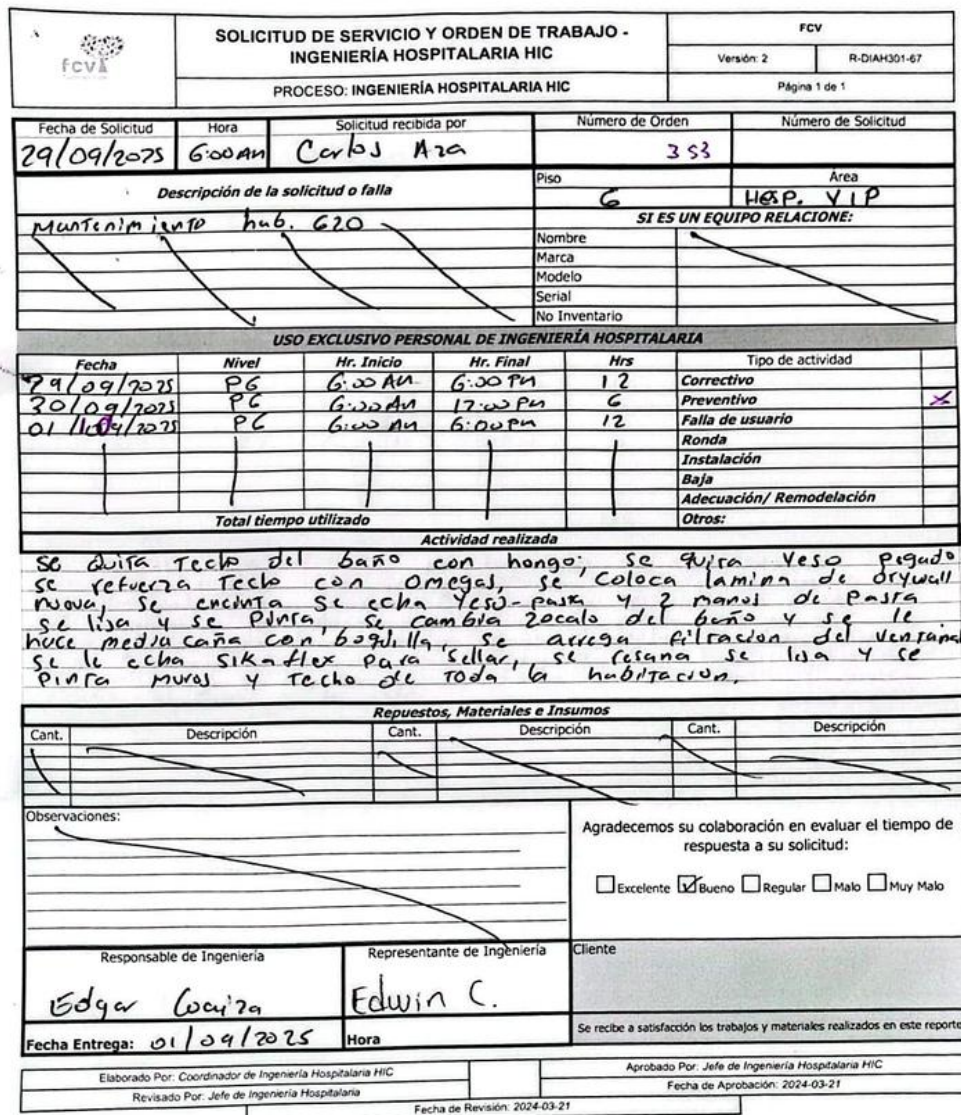 fcv
SOLICITUD DE SERVICIO Y ORDEN DE TRABAJO -
INGENIERÍA HOSPITALARIA HIC
PROCESO: INGENIERÍA HOSPITALARIA HIC
FCV
Versión: 2 R-DIAH301-67
Página 1 de 1
Fecha de Solicitud Hora Solicitud recibida por Número de Orden Número de Solicitud
29/09/2025 6:00 AM Carlos Aza 353
Descripción de la solicitud o falla Piso Área
6 HOSP. VIP
Mantenimiento hab. 620
SI ES UN EQUIPO RELACIONE:
Nombre
Marca
Modelo
Serial
No Inventario
USO EXCLUSIVO PERSONAL DE INGENIERÍA HOSPITALARIA
Fecha Nivel Hr. Inicio Hr. Final Hrs Tipo de actividad
29/09/2025 P6 6:00 AM 6:00 PM 12 Correctivo
30/09/2025 P6 6:00 AM 12:00 PM 6 Preventivo X
01/ /2025 P6 6:00 AM 6:00 PM 12 Falla de usuario
Ronda
Instalación
Baja
Adecuación/ Remodelación
Total tiempo utilizado Otros:
Actividad realizada
se quita Techo del baño con hongo, se quita Yeso pegado
se refuerza Techo con omegas, se coloca lamina de drywall
nueva, se encinta se echa Yeso-pasta y 2 manos de pasta
se lisa y se Pinta, se cambia zocalo del baño y se le
hace media caña con boquilla, se arrega filtracion del ventanal
se le echa sikaflex para sellar, se resana se lisa y se
Pinta muros y Techo de Toda la habitacion.
Repuestos, Materiales e Insumos
Cant. Descripción Cant. Descripción Cant. Descripción
Observaciones:
Agradecemos su colaboración en evaluar el tiempo de
respuesta a su solicitud:
Excelente Bueno Regular Malo Muy Malo
Responsable de Ingeniería Representante de Ingeniería Cliente
Edgar Edwin C.
Fecha Entrega: 01/09/2025 Hora Se recibe a satisfacción los trabajos y materiales realizados en este reporte
Elaborado Por: Coordinador de Ingeniería Hospitalaria HIC Aprobado Por: Jefe de Ingeniería Hospitalaria HIC
Revisado Por: Jefe de Ingeniería Hospitalaria Fecha de Aprobación: 2024-03-21
Fecha de Revisión: 2024-03-21